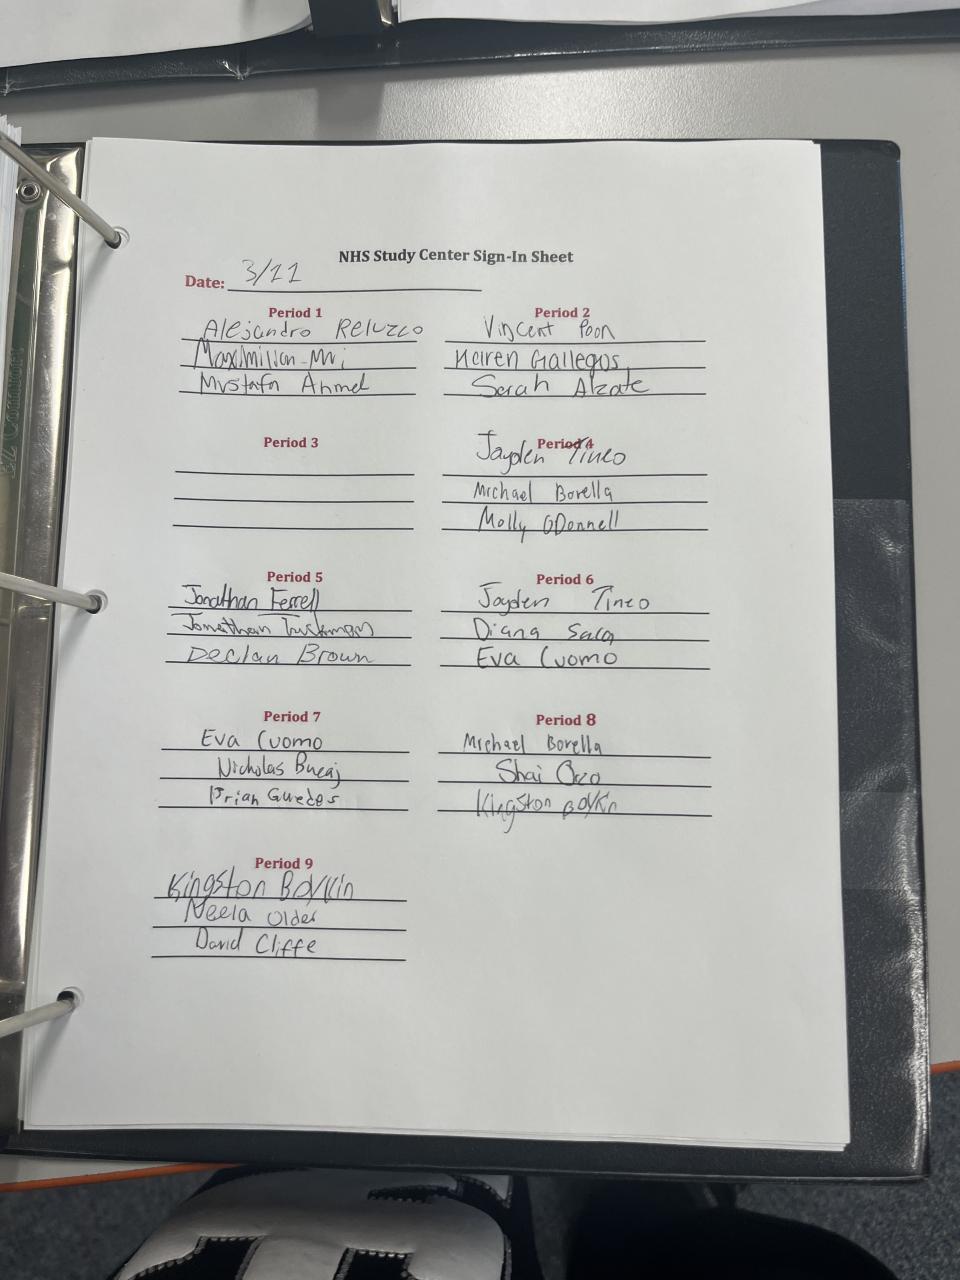 NHS Study Center Sign-In Sheet
Date: 3/11
Period 1
Alejandro Reluzco
Maximilian
Mustafa Ahmed
Period 2
Vincent Poon
Keiren Gallegos
Sarah Alzate
Period 3
Period 4
Jayden Tineo
Michael Borella
Molly ODonnell
Period 5
Jonathan Ferrell
Jonathan Tuckman
Declan Brown
Period 6
Jayden Tineo
Diana Sala
Eva Cuomo
Period 7
Eva Cuomo
Nicholas Bucaj
Brian Guedes
Period 8
Michael Borella
Shai
Kingston Boykin
Period 9
Kingston Boykin
Neela Older
David Cliffe